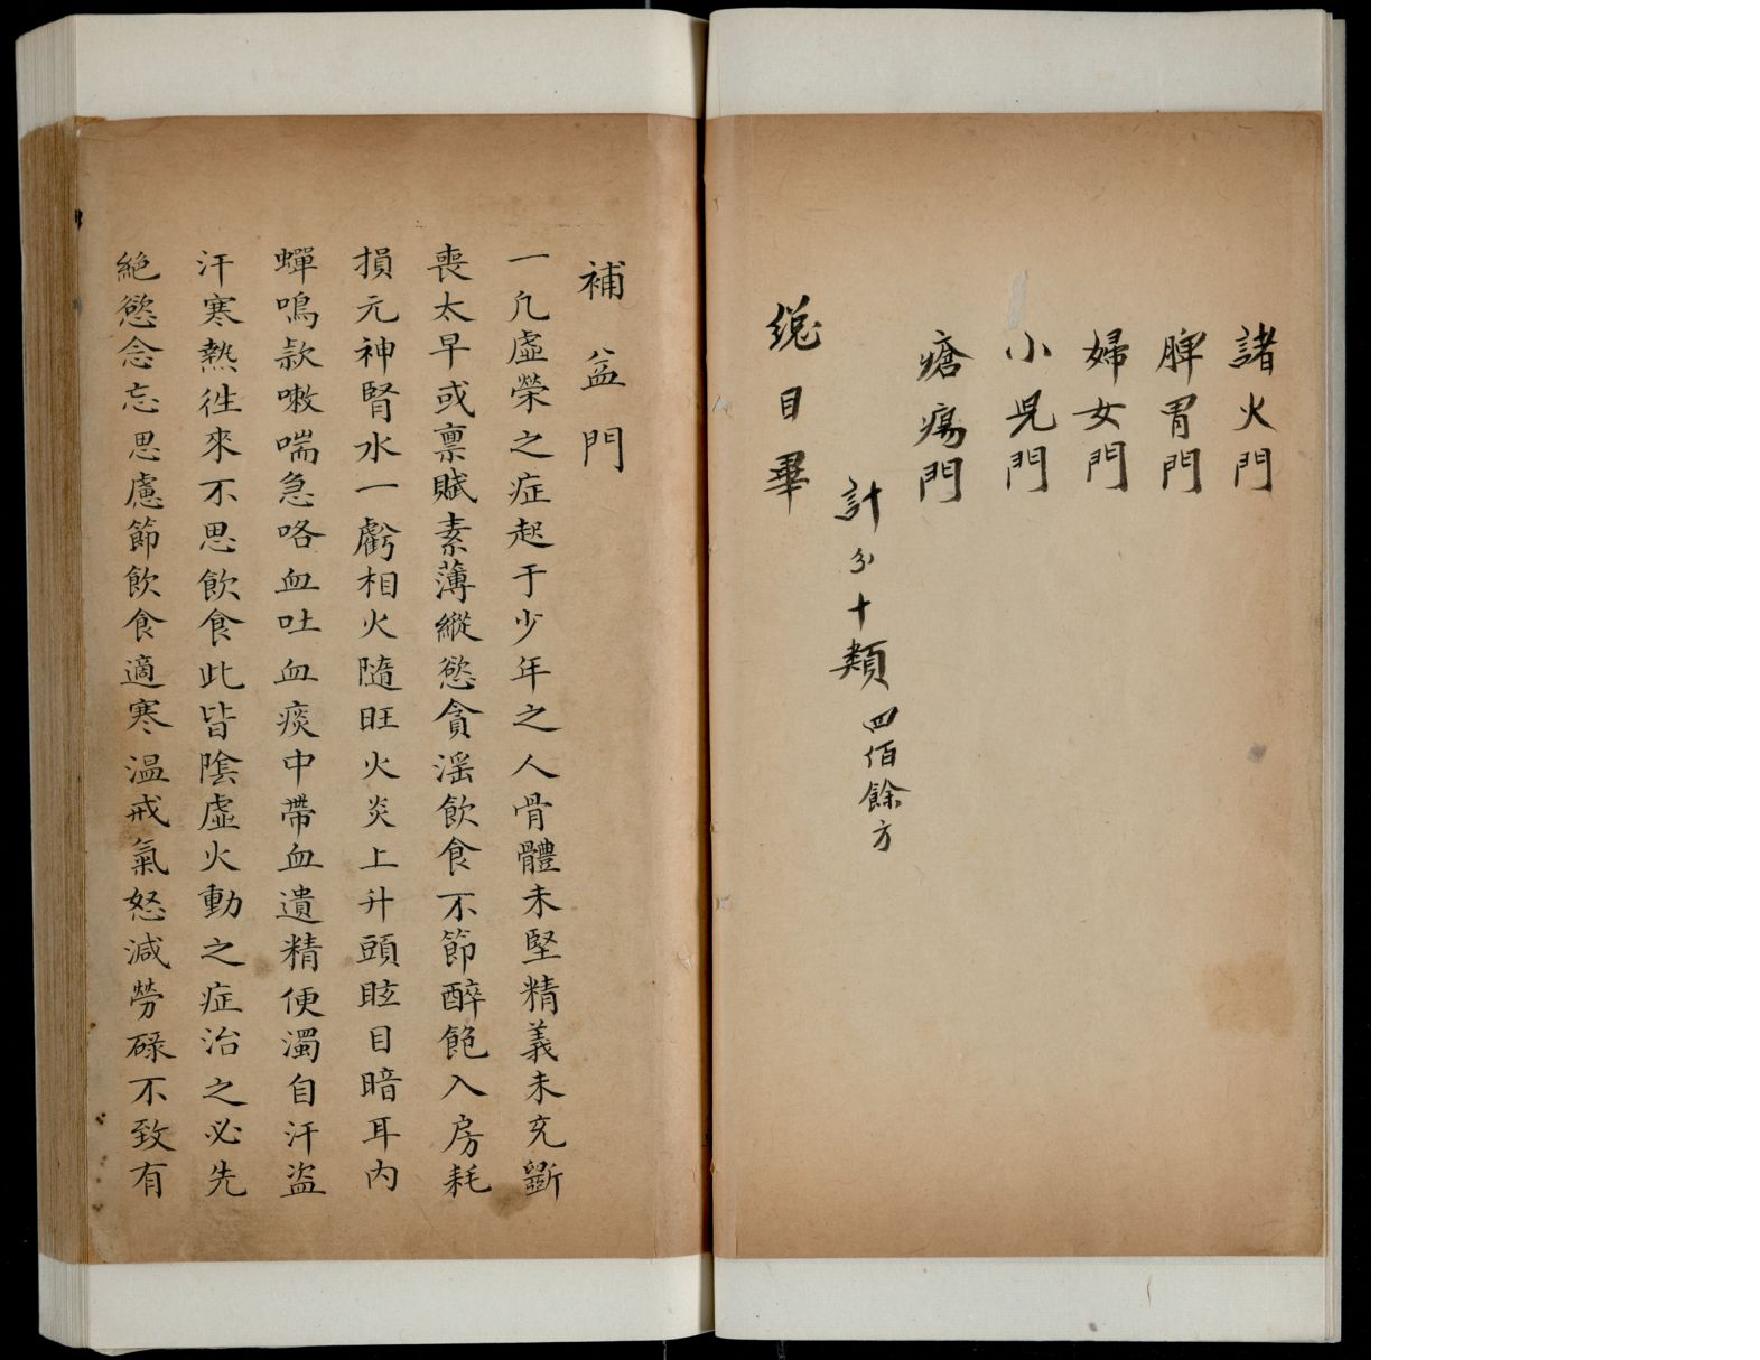 諸火門
脾胃門
婦女門
小児門
瘡瘍門
計分十類四佰餘方
総目畢
補益門
一凡虛榮之症起于少年之人骨體未堅精義未充斵
喪太早或禀賦素薄縱慾貪滛飲食不節醉飽入房耗
損元神腎水一虧相火隨旺火炎上升頭眩目暗耳内
蟬鳴欬嗽喘急咯血吐血痰中帶血遺精便濁自汗盗
汗寒熱徃來不思飲食此皆陰虛火動之症治之必先
絶慾念忘思慮節飲食適寒温戒氣怒減勞碌不致有